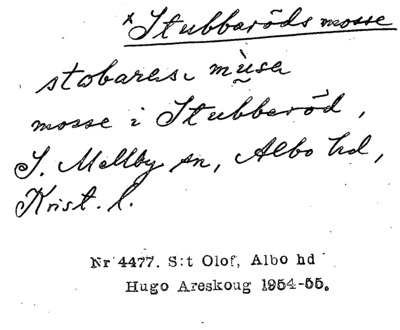 ×Stubbaröds mosse
stobaras mùsa
mosse i Stubberöd,
S. Mellby sn, Albo hd,
Krist. l.
Nr 4477. S:t Olof, Albo hd
Hugo Areskoug 1954-55.